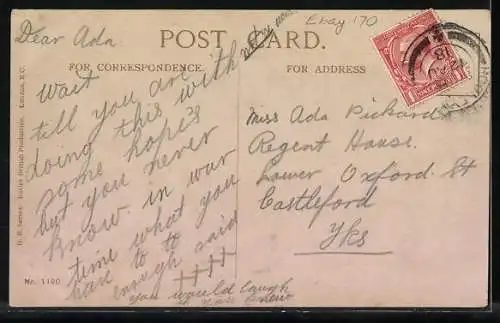 Ebay 170
POST CARD.
FOR CORRESPONDENCE.
FOR ADDRESS
Dear Ada
wait
till you are
doing this with
some hope's
but you never
know. in war
time what you
have to to
enough said
++++
you would laugh
Miss Ada Pickard
Regent House.
Lower Oxford St
Castleford
Yks
London, E.C.
Entire British Production.
Nr. 1180